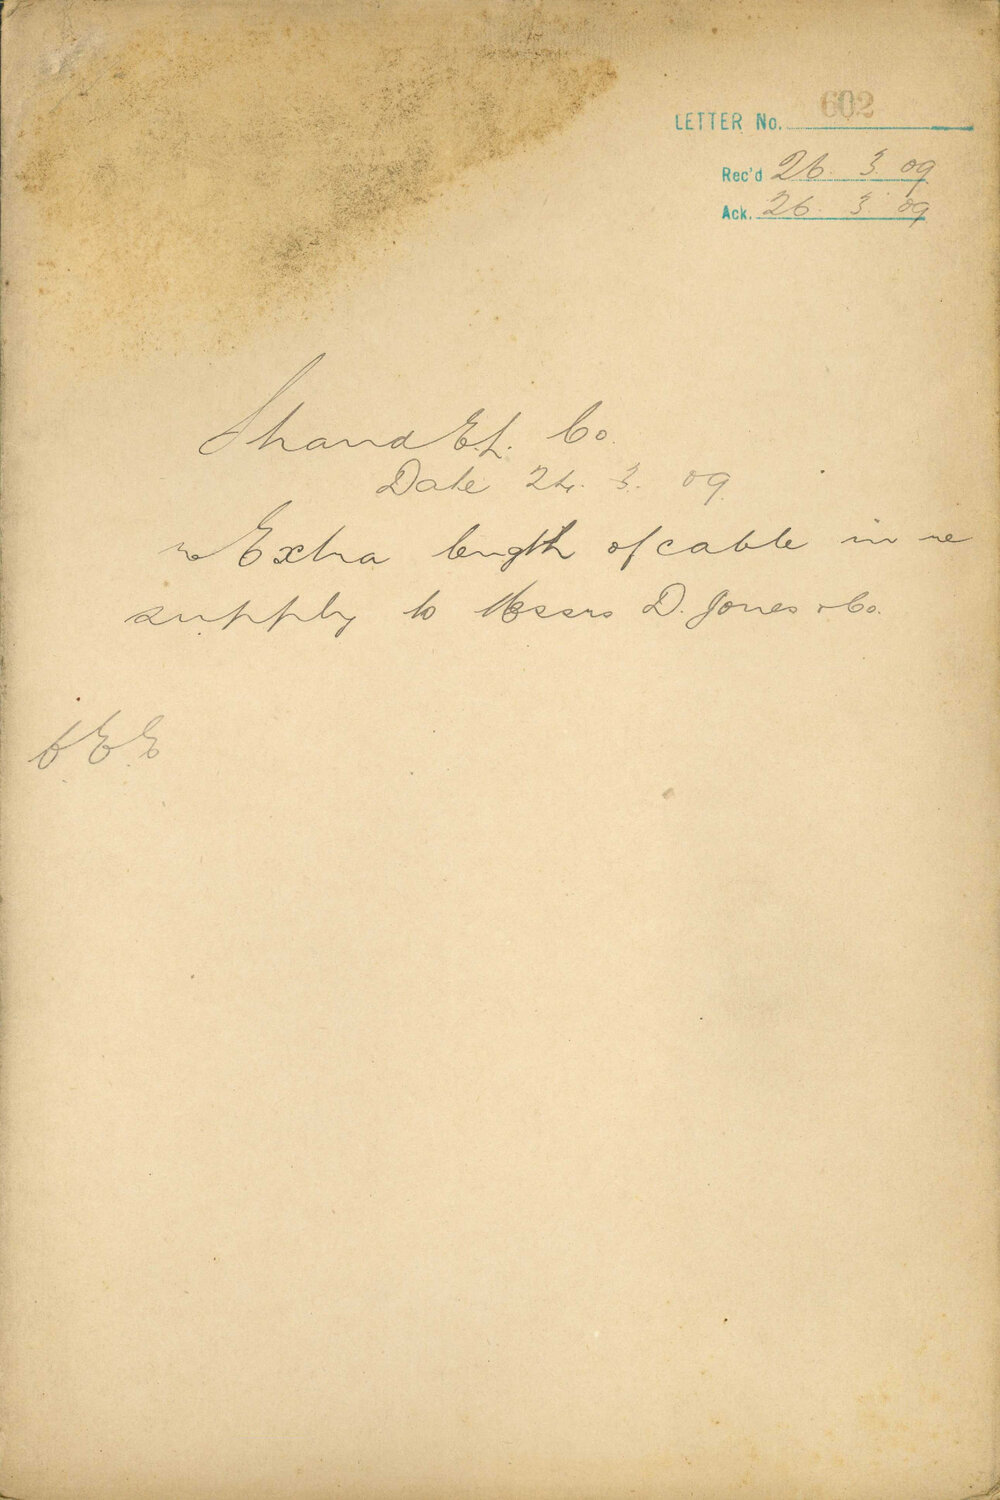 LETTER No. 602
Rec'd 26. 3. 09
Ack. 26. 3. 09
Strand E.L. Co.
Date 24. 3. 09
re Extra length of cable in re
supply to Messrs D. Jones & Co.
C.E.E